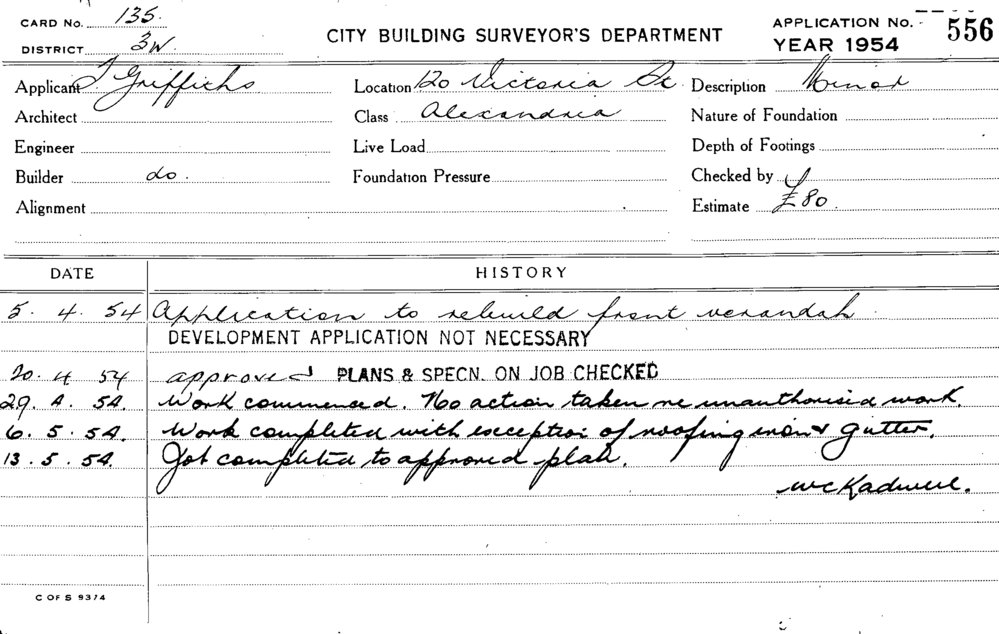 CARD No. 135.
DISTRICT 3W.
CITY BUILDING SURVEYOR'S DEPARTMENT
APPLICATION No. 556
YEAR 1954
Applicant J Griffiths Location 120 Victoria St. Description Minor
Architect Class Alexandria Nature of Foundation
Engineer Live Load Depth of Footings
Builder do. Foundation Pressure Checked by
Alignment Estimate £80.
DATE HISTORY
5. 4. 54 Application to rebuild front verandah
DEVELOPMENT APPLICATION NOT NECESSARY
20. 4 54 approved PLANS & SPECN. ON JOB CHECKED
29. 4. 54. Work commenced. No action taken re unauthorised work.
6. 5. 54. Work completed with exception of roofing iron & gutter.
13. 5. 54. Job completed to approved plan.
WC Kadwell.
C OF S 9374